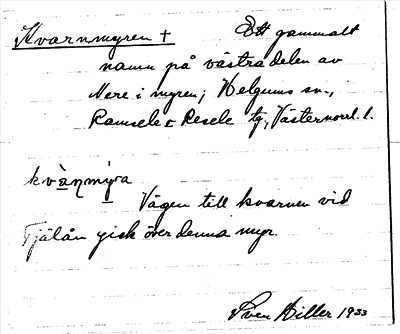 Kvarnmyren + Ett gammalt
namn på västra delen av
Mere i myren; Helgums sn.,
Ramsele & Resele tg, Västernorrl. l.
kvànmýra
Vägen till kvarnen vid
Tjälån gick över denna myr.
Sven Hiller 1933